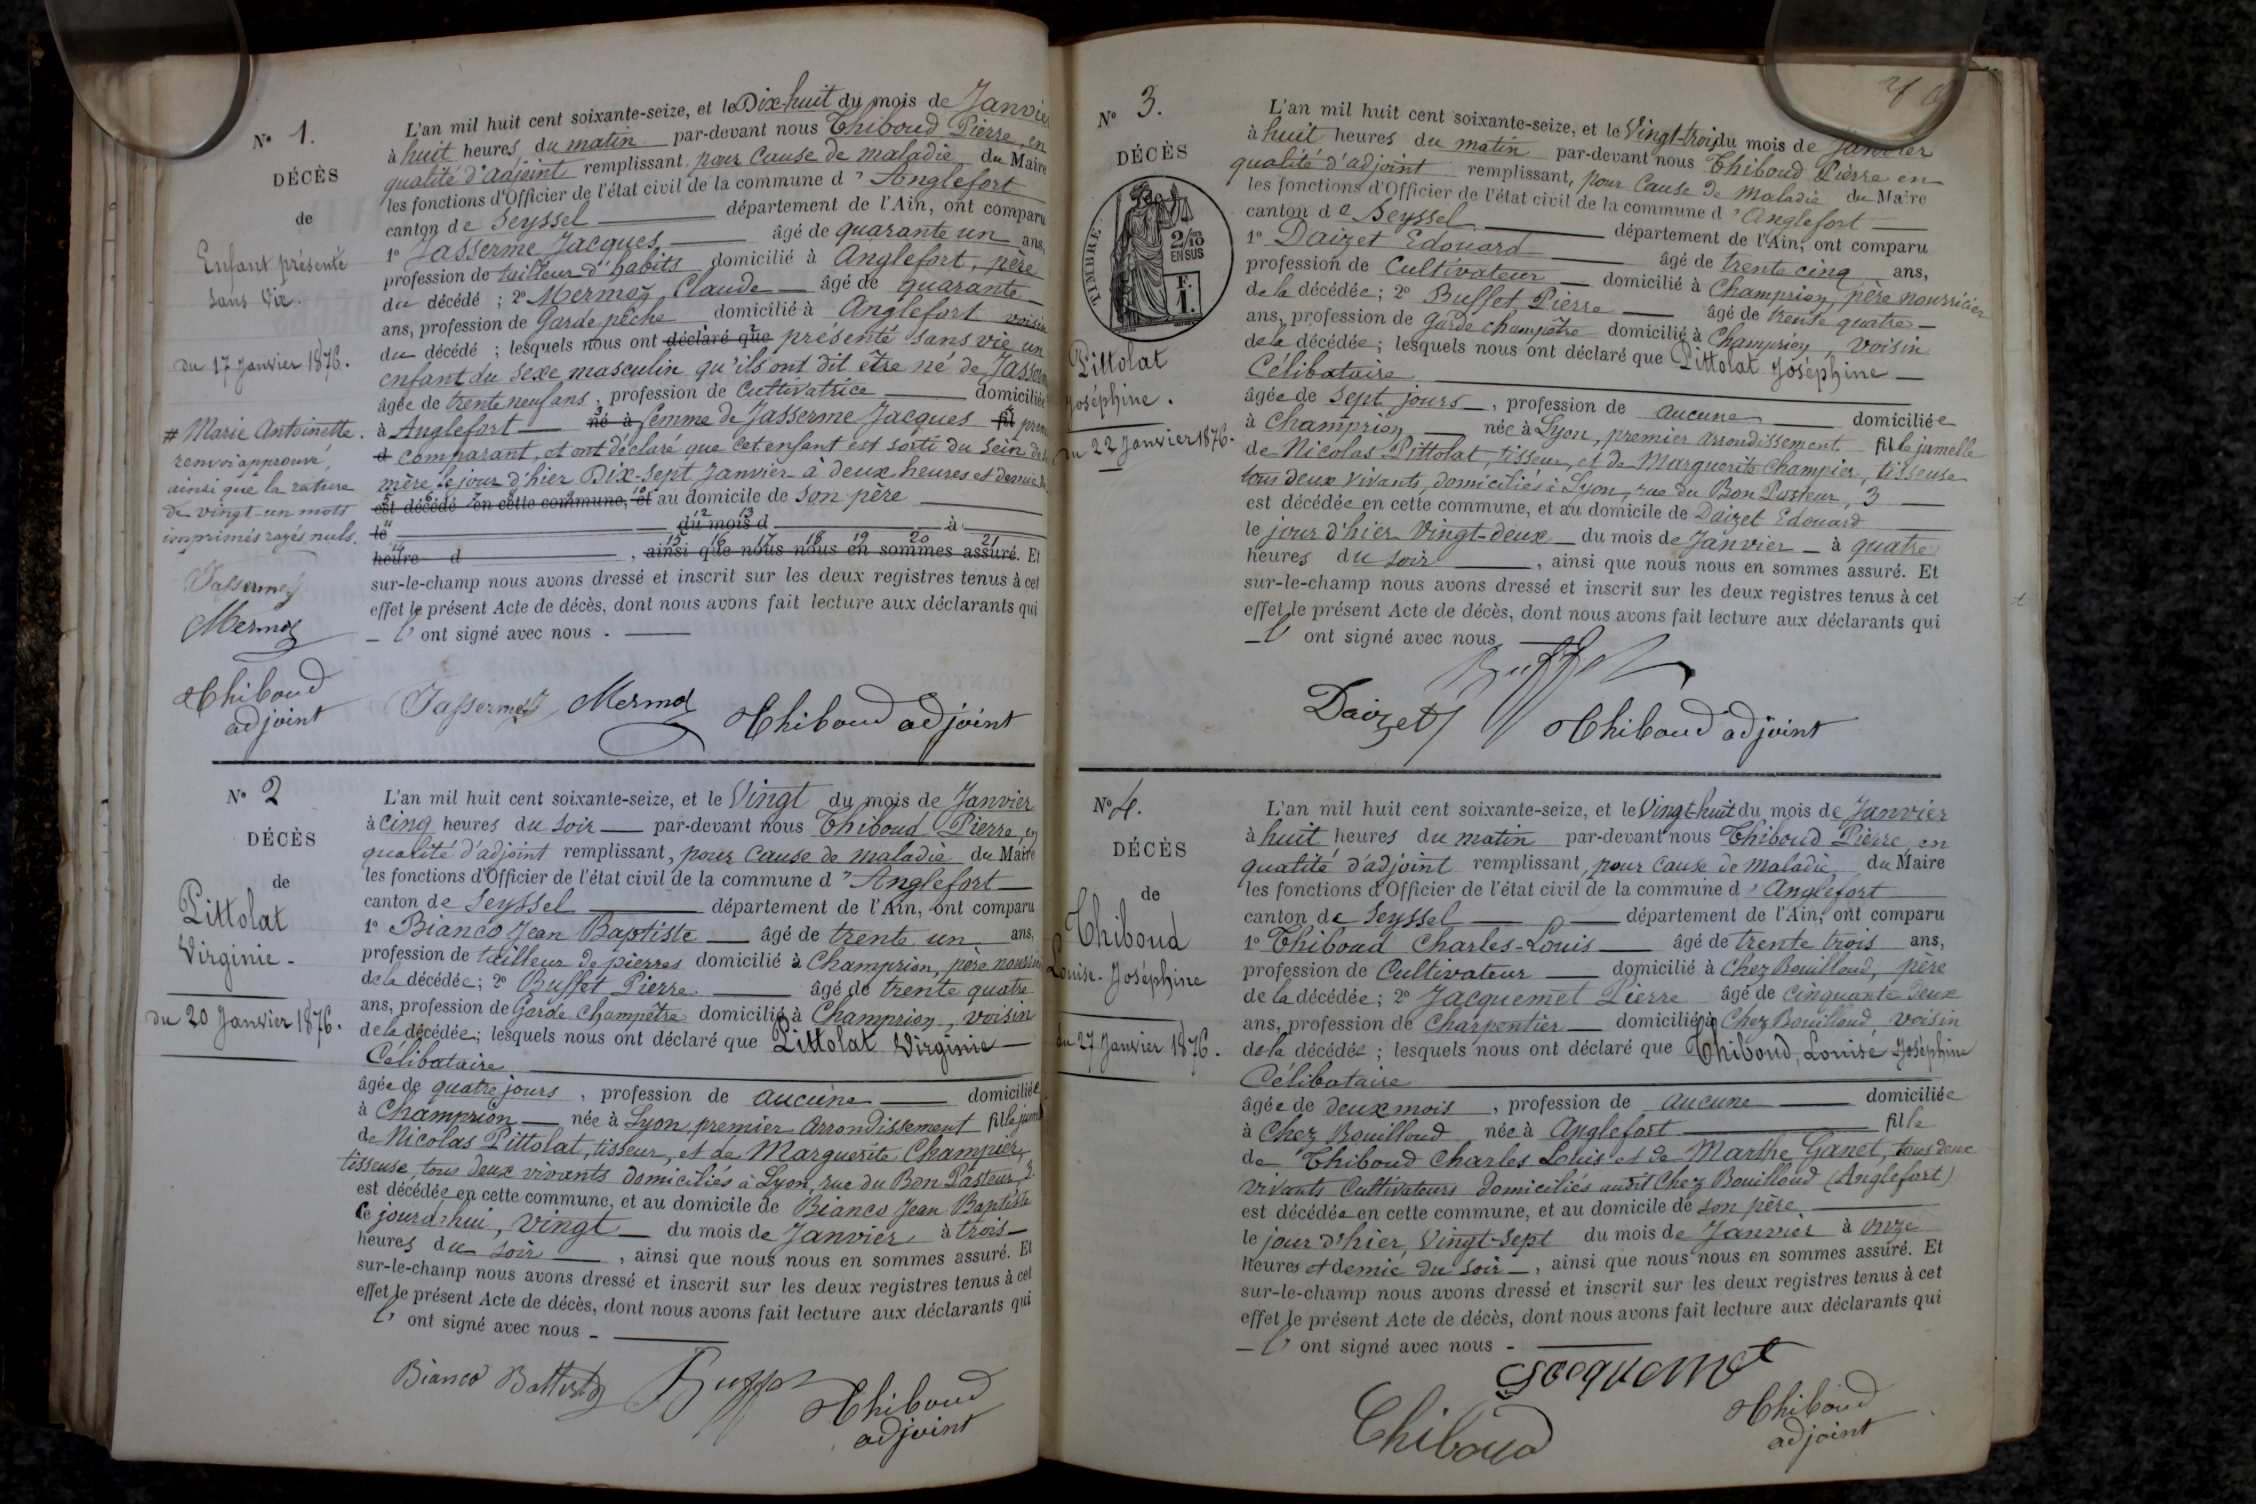 N° 1.
DÉCÈS
de
Enfant présenté
sans vie.
du 17 Janvier 1876.
# Marie Antoinette.
renvoi approuvé,
ainsi que la rature
de vingt-un mots
imprimés rayés nuls.
Jassermez
Mermoz
Thiboud
adjoint
L'an mil huit cent soixante-seize, et le Dix-huit du mois de Janvier
à huit heures du matin par-devant nous Thiboud Pierre, en
qualité d'adjoint remplissant, pour cause de maladie du Maire
les fonctions d'Officier de l'état civil de la commune d'Anglefort
canton de Seyssel département de l'Ain, ont comparu
1° Jasserme Jacques âgé de quarante un ans,
profession de tailleur d'habits domicilié à Anglefort, père
du décédé ; 2° Mermoz Claude âgé de quarante
ans, profession de Garde pêche domicilié à Anglefort voisin
du décédé ; lesquels nous ont déclaré que présenté sans vie un
enfant du sexe masculin qu'ils ont dit être né de Jasserme
âgée de trente neuf ans, profession de Cultivatrice domiciliée
à Anglefort né à femme de Jasserme Jacques fil premier
d comparant, et ont déclaré que cet enfant est sorti du sein de sa
mère le jour d'hier Dix-sept Janvier à deux heures et demie
est décédé en cette commune, et au domicile de son père
le du mois d à
heure d , ainsi que nous nous en sommes assuré. Et
sur-le-champ nous avons dressé et inscrit sur les deux registres tenus à cet
effet le présent Acte de décès, dont nous avons fait lecture aux déclarants qui
l' ont signé avec nous.
Jassermez Mermoz Thiboud adjoint
N° 2
DÉCÈS
de
Pittolat
Virginie
du 20 Janvier 1876.
L'an mil huit cent soixante-seize, et le Vingt du mois de Janvier
à cinq heures du soir par-devant nous Thiboud Pierre, en
qualité d'adjoint remplissant, pour cause de maladie du Maire
les fonctions d'Officier de l'état civil de la commune d'Anglefort
canton de Seyssel département de l'Ain, ont comparu
1° Bianco Jean Baptiste âgé de trente un ans,
profession de tailleur de pierres domicilié à Champrion, père nourricier
de la décédée ; 2° Buffet Pierre âgé de trente quatre
ans, profession de Garde Champêtre domicilié à Champrion, voisin
de la décédée ; lesquels nous ont déclaré que Pittolat Virginie
Célibataire
âgée de quatre jours, profession de aucune domiciliée
à Champrion née à Lyon, premier arrondissement fille jumelle
de Nicolas Pittolat, tisseur, et de Marguerite Champier,
tisseuse, tous deux vivants domiciliés à Lyon, rue du Bon Pasteur, 3
est décédée en cette commune, et au domicile de Bianco Jean Baptiste
ce jourd'hui, vingt du mois de Janvier à trois
heures du soir, ainsi que nous nous en sommes assuré. Et
sur-le-champ nous avons dressé et inscrit sur les deux registres tenus à cet
effet le présent Acte de décès, dont nous avons fait lecture aux déclarants qui
l' ont signé avec nous
Bianco Battista Buffet Thiboud
adjoint
N° 3.
DÉCÈS
TIMBRE
2/10
EN SUS
F.
1.
Pittolat
Joséphine.
du 22 Janvier 1876.
L'an mil huit cent soixante-seize, et le Vingt-trois du mois de Janvier
à huit heures du matin par-devant nous Thiboud Pierre en
qualité d'adjoint remplissant, pour cause de maladie du Maire
les fonctions d'Officier de l'état civil de la commune d'Anglefort
canton de Seyssel département de l'Ain, ont comparu
1° Daizet Edouard âgé de trente cinq ans,
profession de Cultivateur domicilié à Champrion, père nourricier
de la décédée ; 2° Buffet Pierre âgé de trente quatre
ans, profession de Garde champêtre domicilié à Champrion, voisin
de la décédée ; lesquels nous ont déclaré que Pittolat Joséphine
Célibataire
âgée de sept jours, profession de aucune domiciliée
à Champrion née à Lyon, premier arrondissement fille jumelle
de Nicolas Pittolat, tisseur, et de Marguerite Champier, tisseuse
tous deux vivants, domiciliés à Lyon, rue du Bon Pasteur, 3
est décédée en cette commune, et au domicile de Daizet Edouard
le jour d'hier Vingt-deux du mois de Janvier à quatre
heures du soir, ainsi que nous nous en sommes assuré. Et
sur-le-champ nous avons dressé et inscrit sur les deux registres tenus à cet
effet le présent Acte de décès, dont nous avons fait lecture aux déclarants qui
l' ont signé avec nous
Buffet
Daizet Thiboud adjoint
N° 4.
DÉCÈS
de
Thiboud
Louise-Joséphine
du 27 Janvier 1876.
L'an mil huit cent soixante-seize, et le Vingt-huit du mois de Janvier
à huit heures du matin par-devant nous Thiboud Pierre, en
qualité d'adjoint remplissant, pour cause de maladie du Maire
les fonctions d'Officier de l'état civil de la commune d'Anglefort
canton de Seyssel département de l'Ain, ont comparu
1° Thiboud Charles-Louis âgé de trente trois ans,
profession de Cultivateur domicilié à Chez Bouilloud, père
de la décédée ; 2° Jacquemet Pierre âgé de cinquante deux
ans, profession de Charpentier domicilié à Chez Bouilloud, voisin
de la décédée ; lesquels nous ont déclaré que Thiboud, Louise Joséphine
Célibataire
âgée de deux mois, profession de aucune domiciliée
à Chez Bouilloud née à Anglefort fille
de Thiboud Charles Louis et de Marthe Ganet, tous deux
vivants Cultivateurs domiciliés audit Chez Bouilloud (Anglefort)
est décédée en cette commune, et au domicile de son père
le jour d'hier, Vingt-sept du mois de Janvier à onze
heures et demie du soir, ainsi que nous nous en sommes assuré. Et
sur-le-champ nous avons dressé et inscrit sur les deux registres tenus à cet
effet le présent Acte de décès, dont nous avons fait lecture aux déclarants qui
l' ont signé avec nous
Jacquemet
Thiboud Thiboud
adjoint